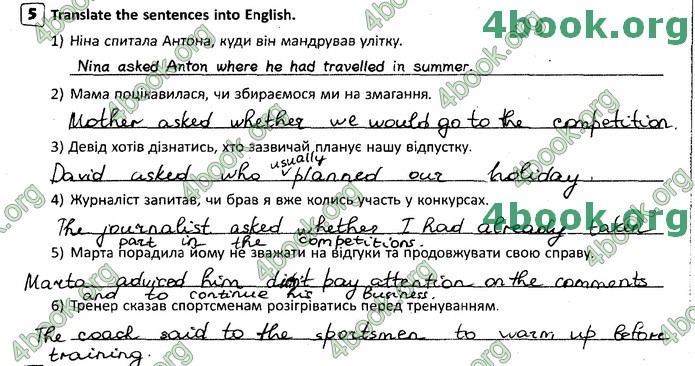 4book.org
5 Translate the sentences into English.
1) Ніна спитала Антона, куди він мандрував улітку.
Nina asked Anton where he had travelled in summer.
2) Мама поцікавилася, чи збираємося ми на змагання.
Mother asked whether we would go to the competition.
3) Девід хотів дізнатись, хто зазвичай планує нашу відпустку.
usually
David asked who planned our holiday.
4) Журналіст запитав, чи брав я вже колись участь у конкурсах.
4book.org
The journalist asked whether I had already taken
part in the competitions.
5) Марта порадила йому не зважати на відгуки та продовжувати свою справу.
Marta adviced him didn't pay attention on the comments
and to continue his business.
6) Тренер сказав спортсменам розігріватись перед тренуванням.
The coach said to the sportsmen to warm up before
training.